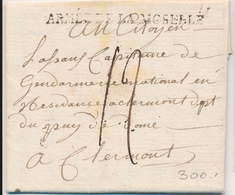 ARMÉE DE LA MOSELLE
Au Citoyen
Lassaus Capitaine de
Gendarmerie national en
Residance a clermont dpt
du puy de dome
a Clermont
300.-